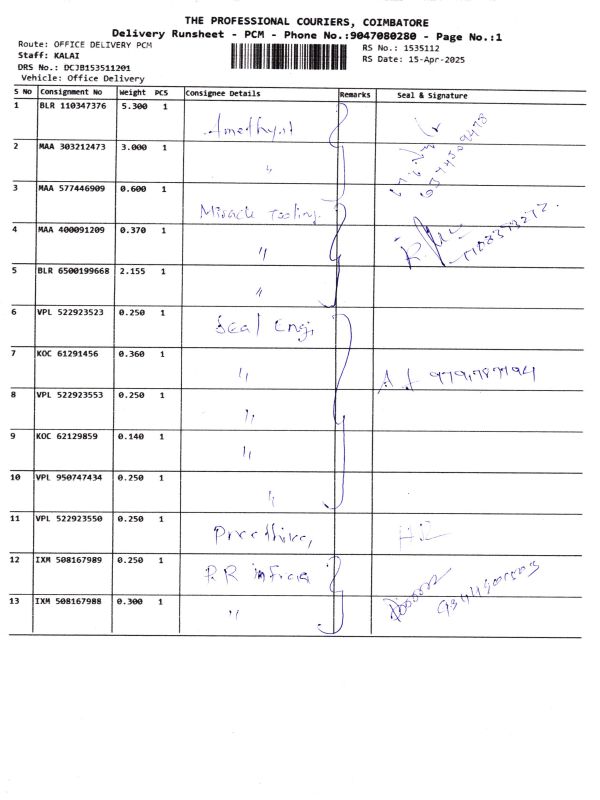 THE PROFESSIONAL COURIERS, COIMBATORE
Delivery Runsheet - PCM - Phone No.:9047080280 - Page No.:1
Route: OFFICE DELIVERY PCM
RS No.: 1535112
Staff: KALAI
RS Date: 15-Apr-2025
DRS No.: DCJB153511201
Vehicle: Office Delivery
S NO Consignment No Weight PCS Consignee Details Remarks Seal & Signature
1 BLR 110347376 5.300 1 Amethyst
2 MAA 303212473 3.000 1 "
3 MAA 577446909 0.600 1 Miracle Tooling
4 MAA 400091209 0.370 1 "
5 BLR 6500199668 2.155 1 "
6 VPL 522923523 0.250 1 Seal Eng,
7 KOC 61291456 0.360 1 "
8 VPL 522923553 0.250 1 "
9 KOC 62129859 0.140 1 "
10 VPL 950747434 0.250 1 "
11 VPL 522923550 0.250 1
12 IXM 508167989 0.250 1 P.R infra
13 IXM 508167988 0.300 1 "